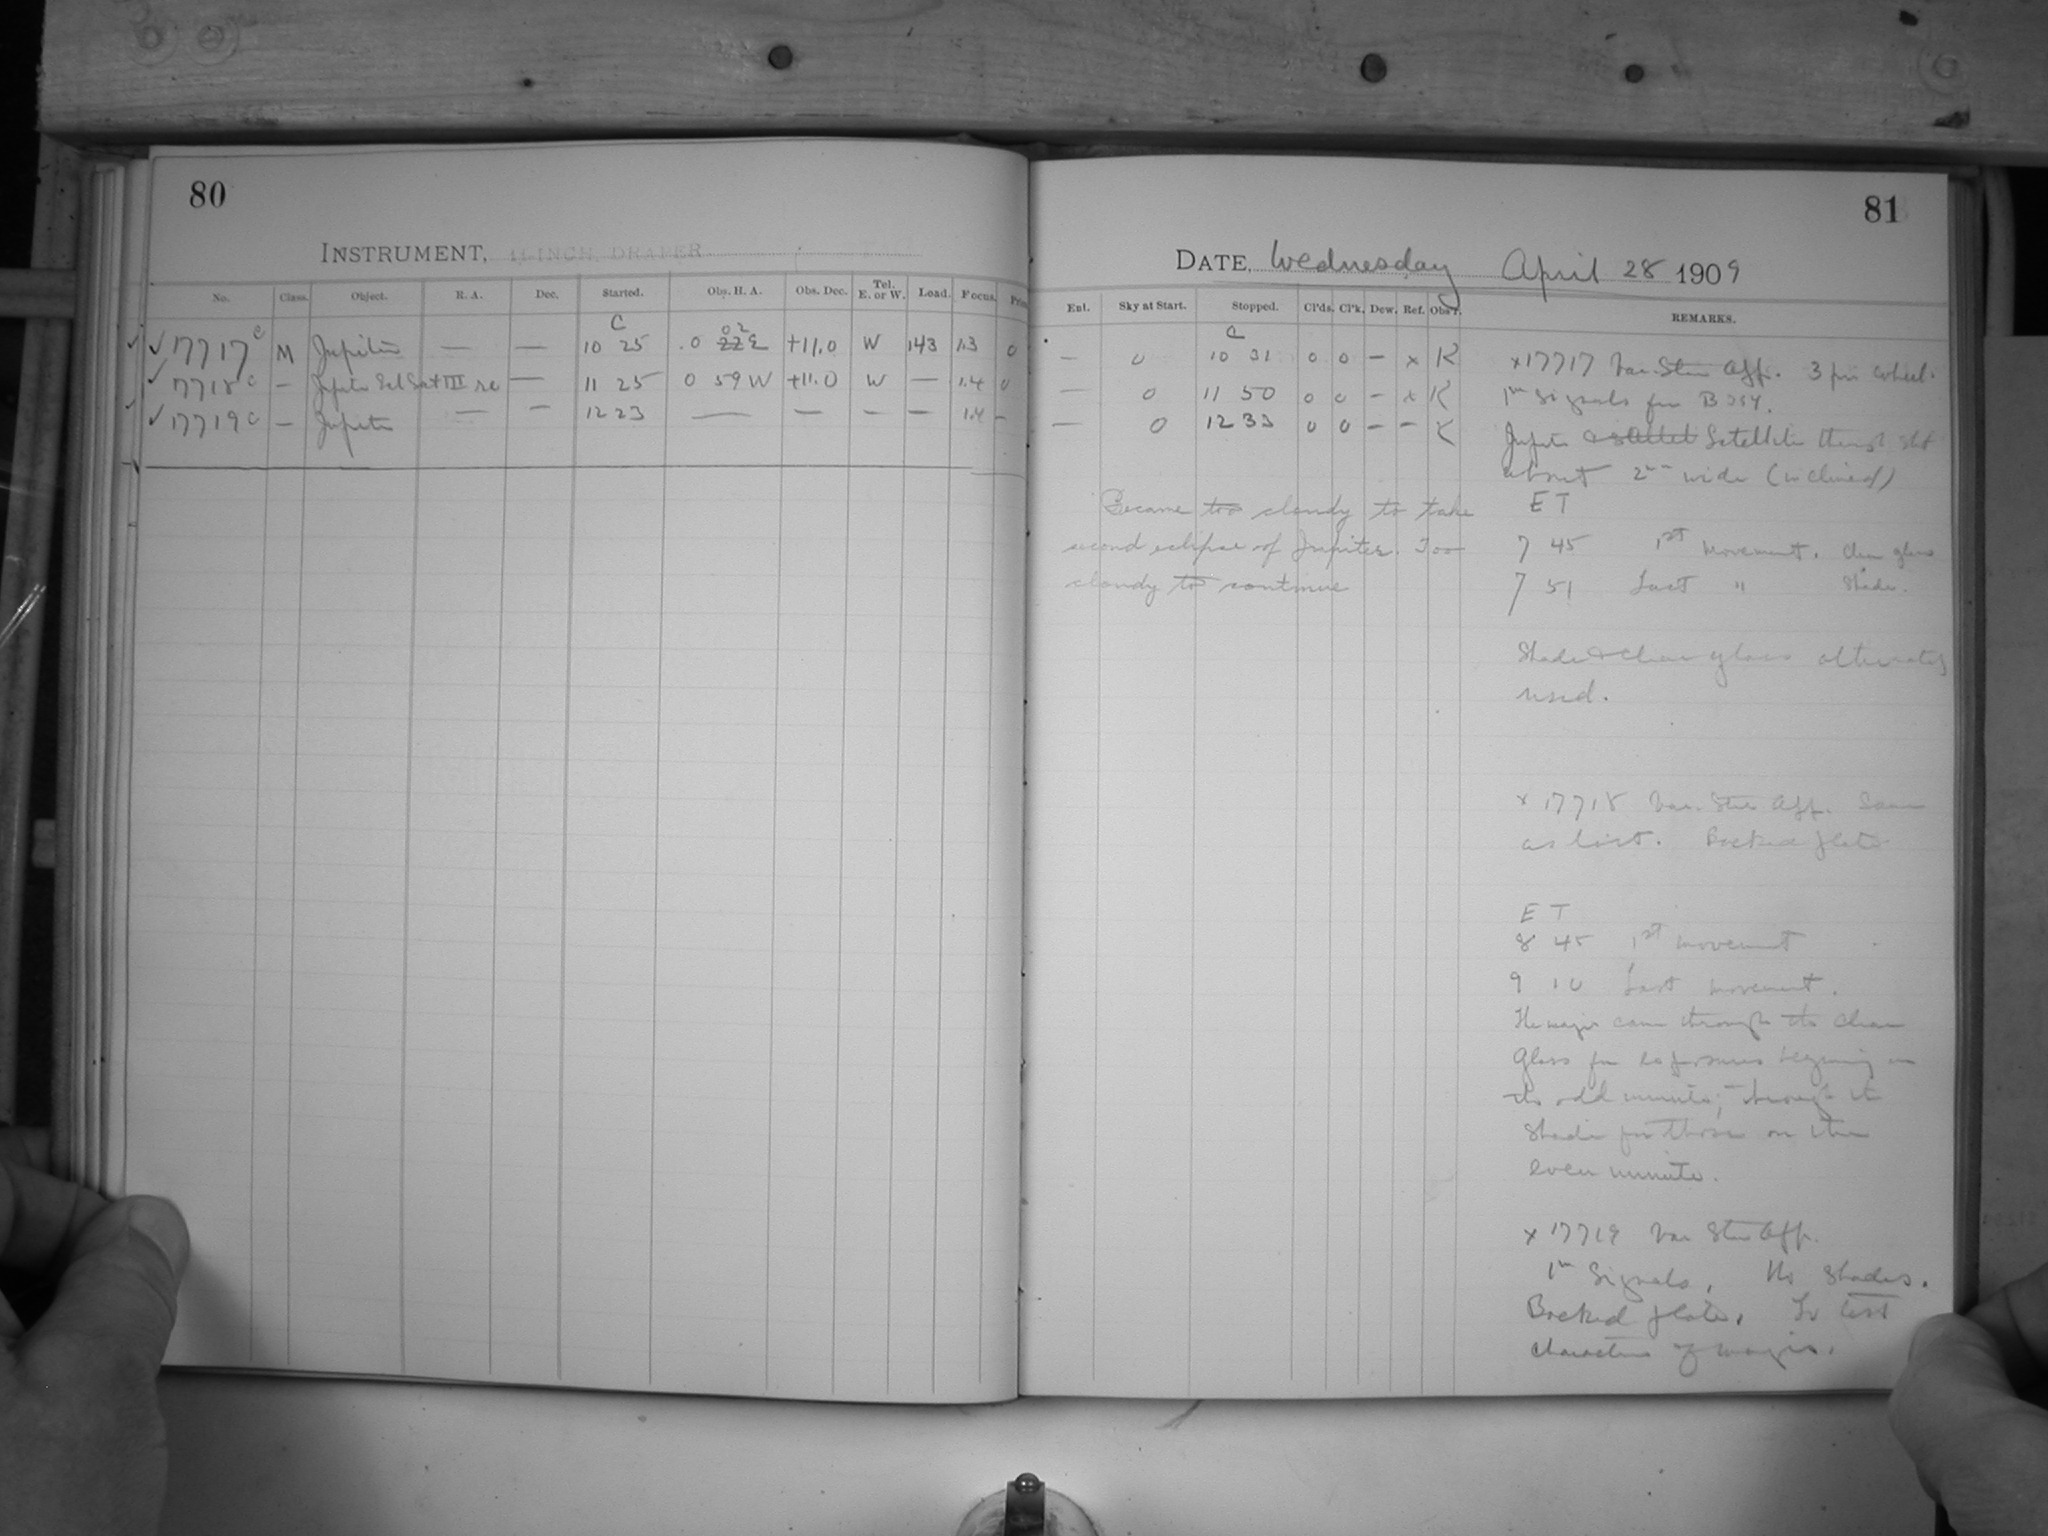 80
INSTRUMENT, 11-INCH DRAPER
No. Class. Object. R. A. Dec. Started. Obs. H. A. Obs. Dec. Tel. E. or W. Load. Focus.
C
17717 c M Jupiter — — 10 25 0 02 E +11.0 W 143 1.3 0
17718 c — Jupiter Ecl Sat III re — 11 25 0 59 W +11.0 W — 1.4 0
17719 c — Jupiter — — 12 23 — — — — 1.4 —
81
DATE, Wednesday April 28 1909
Enl. Sky at Start. Stopped. Cl'ds. Cl'k. Dew. Ref. Obs'r. REMARKS.
C
— 0 10 31 0 0 — x K
— 0 11 50 0 0 — x K
— 0 12 33 0 0 — — K
Became too cloudy to take
second eclipse of Jupiter. Too
cloudy to continue
x 17717 Var. Star App. 3 pin wheel.
1m signals for
Jupiter & Satellite through slot
about 2 mm wide (inclined)
E T
7 45 1st movement. clear glass
7 51 Last " shade.
Shade & clear glass alternately
used.
x 17718 Var. Star App. Same
as last. Backed plate.
E T
8 45 1st movement
9 10 Last movement.
The major came through the clear
glass for exposures beginning on
the odd minute; through the
shade for those on the
even minute.
x 17719 Var Star App.
1m Signals. No shades.
Backed plate. To test
character of images.